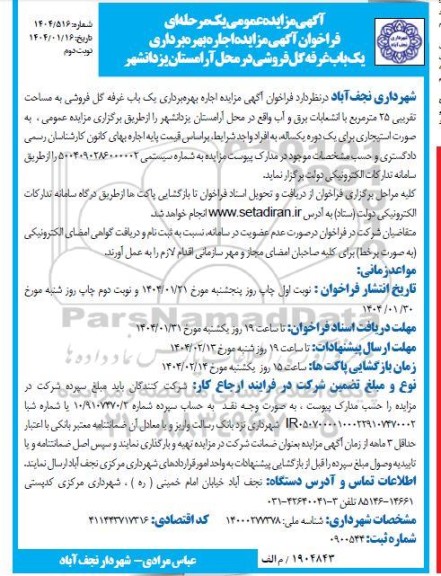 آگهی مزایده عمومی یک مرحله‌ای
فراخوان آگهی مزایده اجاره بهره‌برداری
یک باب غرفه گل فروشی در محل آرامستان یزدانشهر
شماره: ۱۴۰۴/۵۱۶
تاریخ: ۱۴۰۴/۰۱/۱۶
نوبت دوم
شهرداری نجف‌آباد درنظردارد فراخوان آگهی مزایده اجاره بهره‌برداری یک باب غرفه گل فروشی به مساحت
تقریبی ۲۵ مترمربع با انشعابات برق و آب واقع در محل آرامستان یزدانشهر را ازطریق برگزاری مزایده عمومی ، به
صورت استیجاری برای یک دوره یکساله، به افراد واجد شرایط، براساس قیمت پایه اجاره بهای کانون کارشناسان رسمی
دادگستری و حسب مشخصات موجود در مدارک پیوست مزایده به شماره سیستمی ۵۰۰۴۰۹۰۲۸۶۰۰۰۰۰۲ را ازطریق
سامانه تدارکات الکترونیکی دولت برگزار نماید.
کلیه مراحل برگزاری فراخوان از دریافت و تحویل اسناد فراخوان تا بازگشایی پاکت ها ازطریق درگاه سامانه تدارکات
الکترونیکی دولت (ستاد) به آدرس www.setadiran.ir انجام خواهد شد.
متقاضیان شرکت در فراخوان درصورت عدم عضویت در سامانه، نسبت به ثبت نام و دریافت گواهی امضای الکترونیکی
(به صورت برخط) برای کلیه صاحبان امضای مجاز و مهر سازمانی اقدام لازم را به عمل آورند.
مواعد زمانی:
تاریخ انتشار فراخوان : نوبت اول چاپ روز پنجشنبه مورخ ۱۴۰۴/۰۱/۲۱ و نوبت دوم چاپ روز شنبه مورخ
۱۴۰۴/۰۱/۳۰
مهلت دریافت اسناد فراخوان: تا ساعت ۱۹ روز یکشنبه مورخ ۱۴۰۴/۰۱/۳۱
مهلت ارسال پیشنهادات: تا ساعت ۱۹ روز شنبه مورخ ۱۴۰۴/۰۲/۱۳
زمان بازگشایی پاکت ها: ساعت ۱۵ روز یکشنبه مورخ ۱۴۰۴/۰۲/۱۴
نوع و مبلغ تضمین شرکت در فرایند ارجاع کار: شرکت کنندگان باید مبلغ سپرده شرکت در
مزایده را حسب مدارک پیوست ، به صورت وجه نقد به حساب سپرده شماره ۱۰/۹۱۰۷۴۷۰/۲ یا شماره شبا
شهرداری نزد بانک رسالت واریز و یا معادل آن ضمانتنامه معتبر بانکی با اعتبار
حداقل ۳ ماهه از زمان آگهی مزایده بعنوان ضمانت شرکت در مزایده تهیه و بارگذاری نمایند و سپس اصل ضمانتنامه و یا
تاییدیه وصول مبلغ سپرده را قبل از بازگشایی پیشنهادات به واحد امور قراردادهای شهرداری مرکزی نجف آباد ارسال نمایند.
اطلاعات تماس و آدرس دستگاه: نجف آباد خیابان امام خمینی ( ره ) ، شهرداری مرکزی کدپستی
۸۵۱۴۶-۱۴۶۶۱ تلفن ۳-۴۲۶۴۰۰۴۱-۰۳۱
مشخصات شهرداری: شناسه ملی: ۱۴۰۰۰۲۷۷۳۷۸ کد اقتصادی: ۴۱۱۴۴۳۷۱۷۳۱۶
شماره ثبت: ۰۹۰۰۵۴۳
۱۹۰۴۸۴۳ / م الف
عباس مرادی- شهردار نجف‌آباد